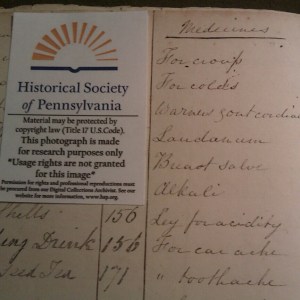 Historical Society
of Pennsylvania
Material may be protected by
copyright law (Title 17 U.S.Code).
This photograph is made
for research purposes only
*Usage rights are not granted
for this image*
Permission for rights and professional reproductions must
be procured from our Digital Collections Archivist. See our
website for more information, www.hsp.org.
156
Drink 156
Tea 171
Medicines
For croup
For colds
Warners gout cordial
Laudanum
Burnt salve
Alkali
Ley for acidity
For ear ache
" toothache